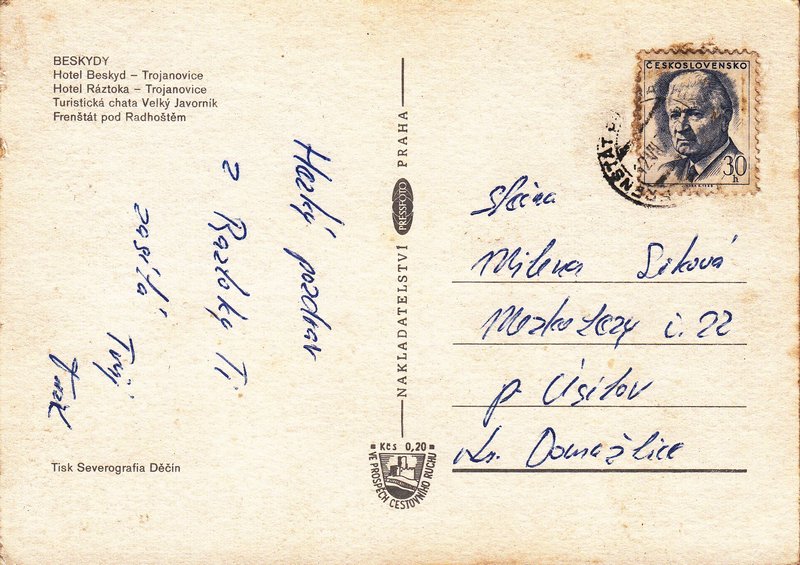 BESKYDY
Hotel Beskyd – Trojanovice
Hotel Ráztoka – Trojanovice
Turistická chata Velký Javorník
Frenštát pod Radhoštěm
Hezký pozdrav
z Raztoky Ti
zasílá Tvůj
NAKLADATELSTVÍ PRESSFOTO PRAHA
Kčs 0,20
VE PROSPĚCH CESTOVNÍHO RUCHU
ČESKOSLOVENSKO
30 h
FRENŠTÁT P
Slečna
Milena
č. 22
p. Úsilov
Domažlice
Tisk Severografia Děčín